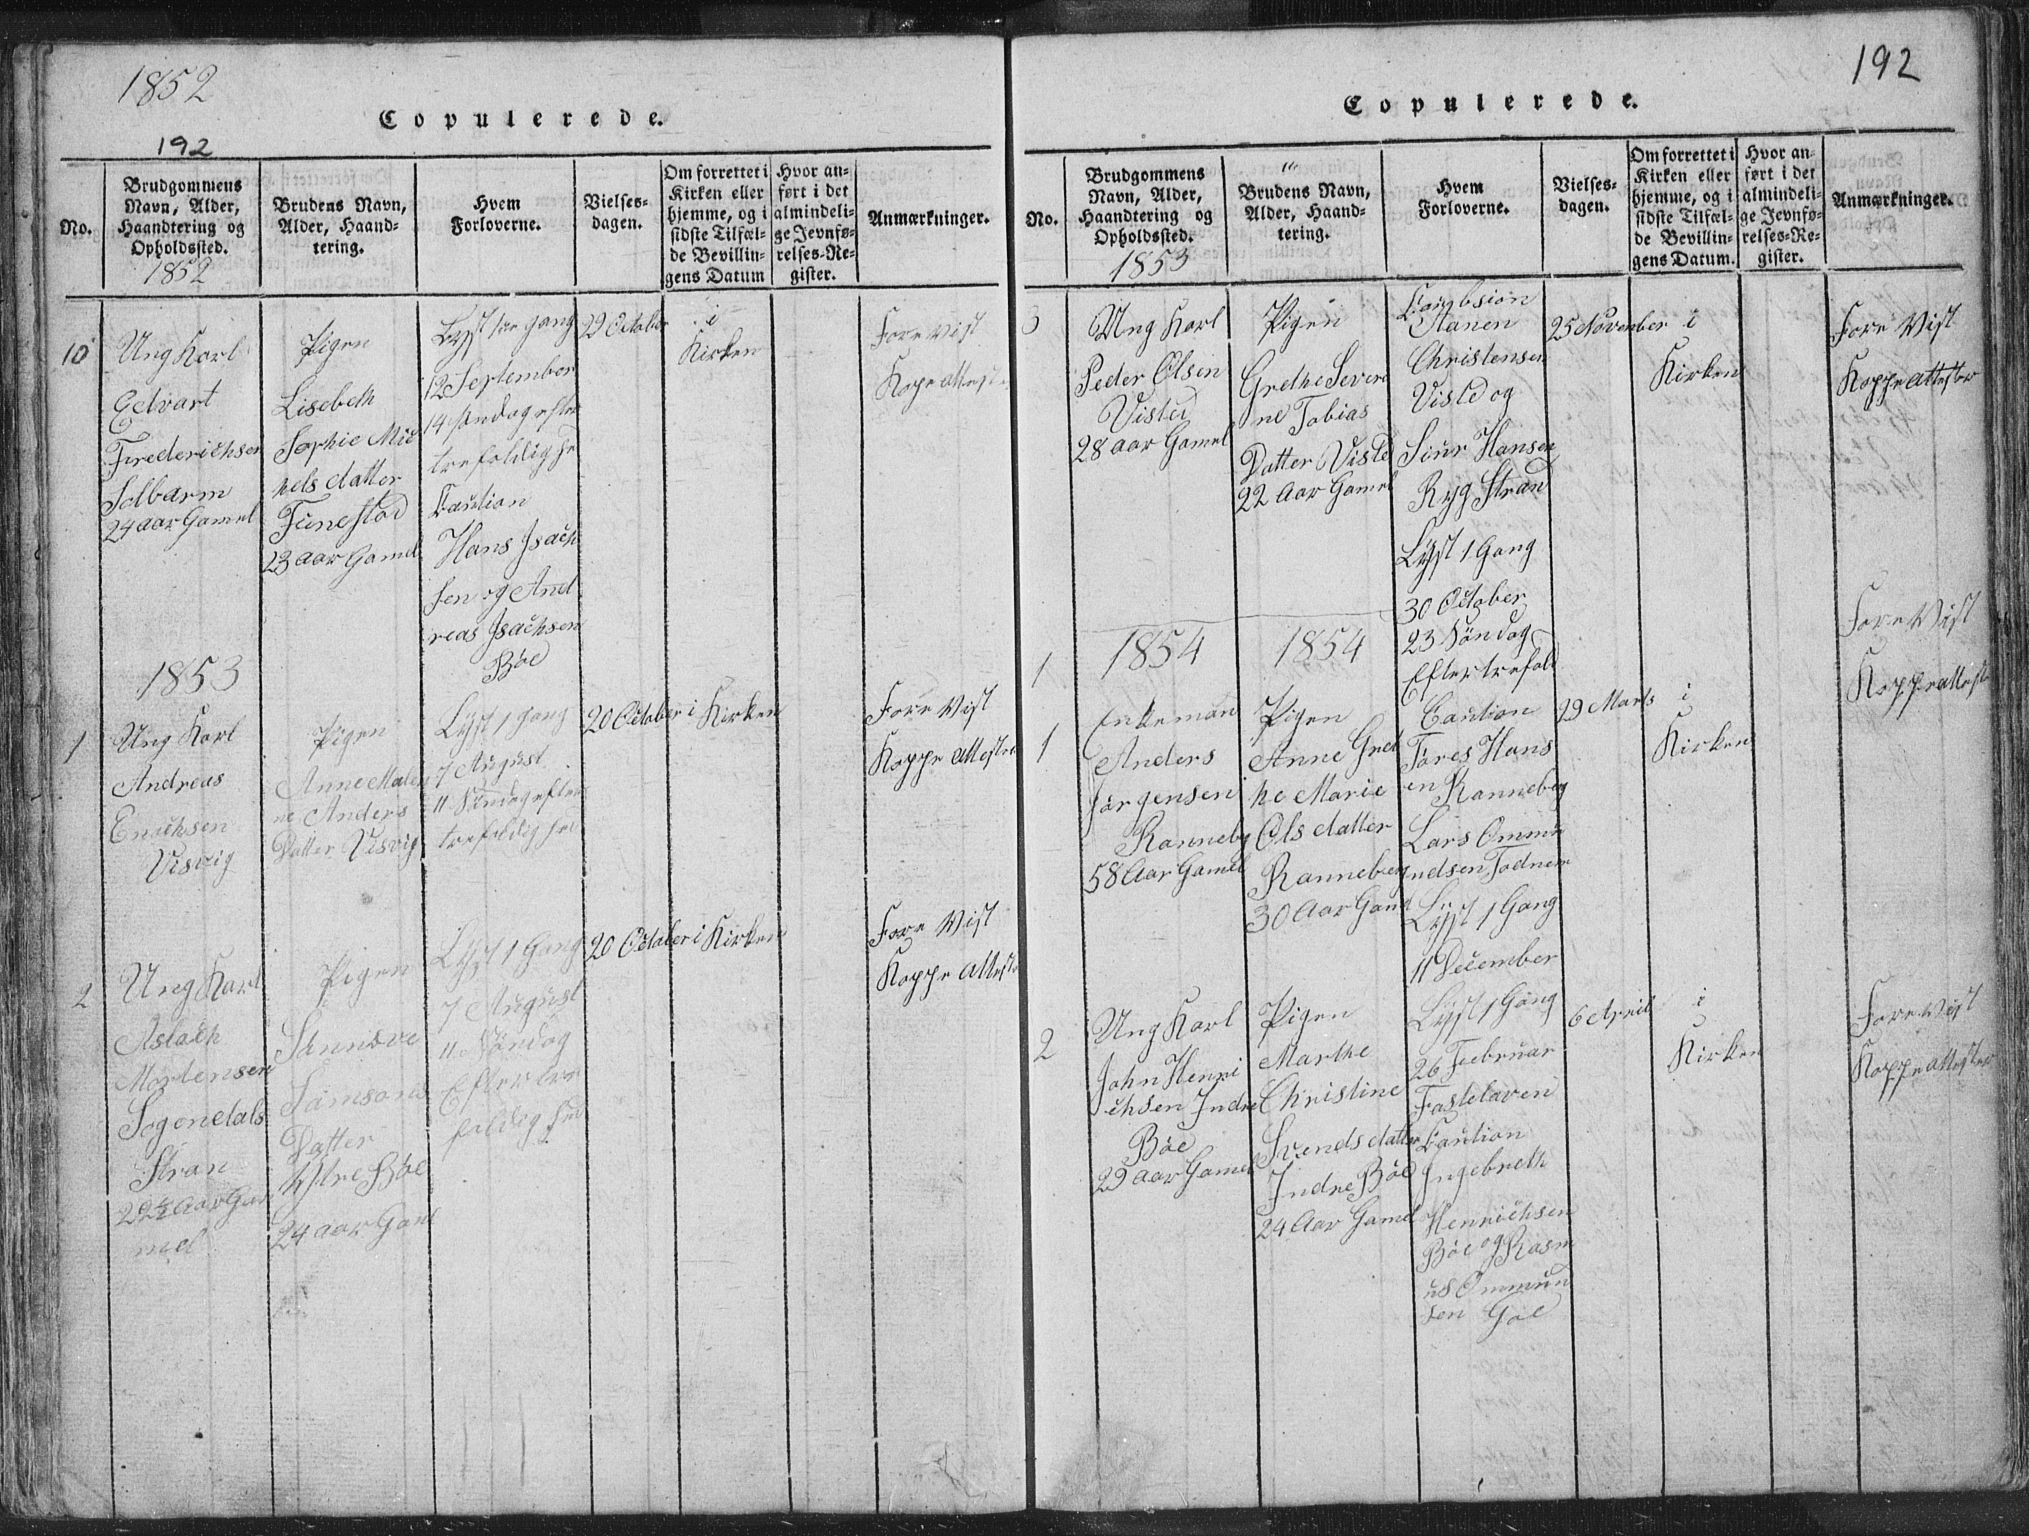 1852
Copulerede.
192
No.
Brudgommens
Navn, Alder,
Haandtering og
Opholdssted.
1852
Brudens Navn,
Alder, Haand-
tering.
Hvem
Forloverne.
Vielses-
dagen.
Om forrettet i
Kirken eller
hjemme, og i
sidste Tilfæl-
de Bevillin-
gens Datum
Hvor an-
ført i det
almindeli-
ge Jevnfø-
relses-Re-
gister.
Anmærkninger.
10
Ung Karl
Edvart
Frederichsen
Solbarm
24 aar Gamel
Pigen
Lisebeth
Sophie Mic
hels datter
Tunestad
23 aar Gamel
Lyst 1ste gang
12 September
14 søndag efter
trefoldighe
Caution
Hans Isach
sen og And
reas Isachsen
Bøe
29 October
i
Kirken
Fore Vist
Koppe atteste
1853
1
Ung Karl
Andreas
Erichsen
Visvig
Pigen
Anne Male
ne Anders
Datter Visvig
Lyst 1 gang
7 August
11 Søndag efter
trefoldig he
20 October
i Kirken
Fore Vist
Koppe Atteste
2
Ung Karl
Aslach
Mortensen
Sogendals
Stran
22½ Aar Ga
mel
Pigen
Sannøve
Samsons
Datter
Ystre Bøe
24 aar Gam
Lyst 1 Gang
7 August
11 Søndag
Efter tre
foldig he
20 October
i Kirken
Fore Vist
Koppe Atteste
192
Copulerede.
No.
Brudgommens
Navn, Alder,
Haandtering og
Opholdssted.
1853
Brudens Navn,
Alder, Haand-
tering.
Hvem
Forloverne.
Vielses-
dagen.
Om forrettet i
Kirken eller
hjemme, og i
sidste Tilfæl-
de Bevillin-
gens Datum.
Hvor an-
ført i det
almindeli-
ge Jevnfø-
relses-Re-
gister.
Anmærkninger.
3
Ung Karl
Peder Olsen
Visted
28 aar Gamel
Pigen
Grethe Severi
ne Tobias
Datter Viste
22 Aar Gamel
Christensen
Viste og
Siur Hansen
Ryg Stran
Lyst 1 Gang
30 October
23 Søndag
Efter trefold
25 November
i
Kirken
Fore Vist
Koppe attester
1
1854
1854
1
Enkeman
Anders
Jørgensen
Ranneberg
58 Aar Gamel
Pigen
Anne Gret
he Marie
Ols datter
Ranneberg
30 Aar Gam
Caution
Tøres Hans
en Ranneberg
Lars Ommu
ndsen Todnem
Lyst 1 Gang
11 December
29 Marts
i
Kirken
Fore Vist
Koppe atteste
2
Ung Karl
John Henri
chsen Indre
Bøe
29 aar Gamel
Pigen
Marthe
Christine
Svends datter
Indre Bøe
24 Aar Gamel
Lyst 1 Gang
26 Februar
Fastelaven
Caution
Ingebreth
Henrichsen
Bøe og Rasm
us Ommun
sen Goe
6 April
i
Kirken
Fore Vist
Koppe attester